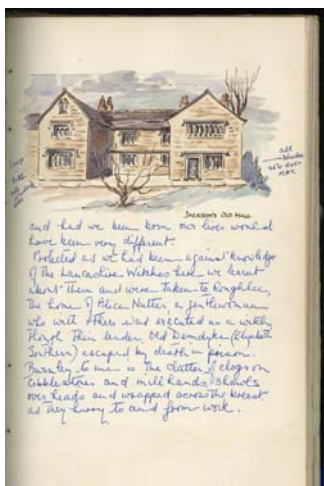 JACKSON'S OLD HALL
and had we been born our lives would
have been very different.
Protected as we had been against knowledge
of the Lancashire Witches here we learnt
about them and were taken to Roughlee,
the home of Alice Nutter a gentlewoman
who with others was executed as a witch
though their leader Old Demdyke (Elizabeth
Southern) escaped by death in prison.
Burnley to me is the clatter of clogs on
cobblestones and mill hands, shawls
over heads and wrapped across the breast
as they hurry to and from work.